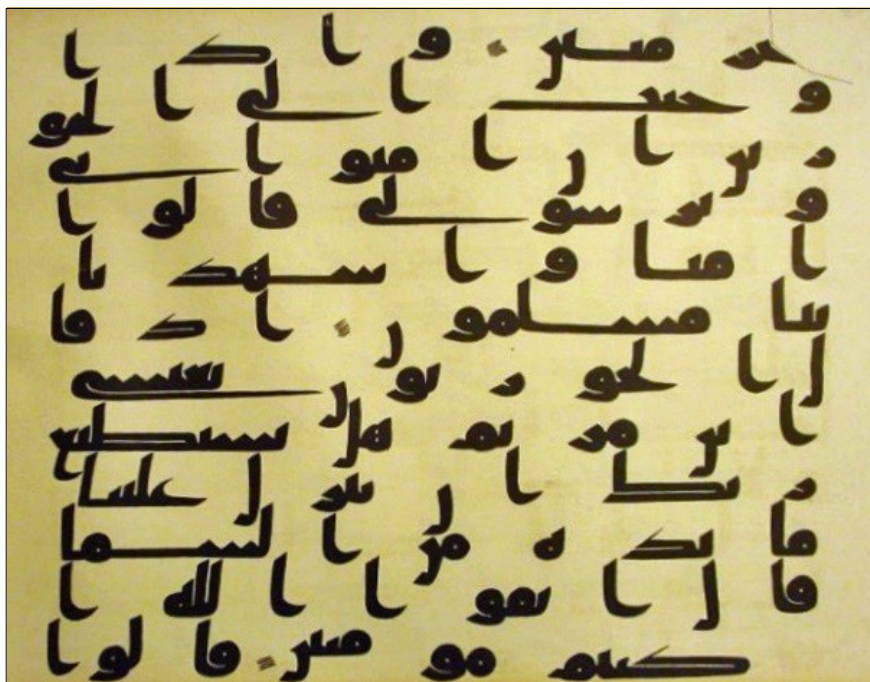 حر مبين وا ذ ا
و حيت ا لى ا لحو
ر ين ا ن ا منو ا بي
و بر سولي قا لو ا
ا منا و ا شهد با
ننا مسلمون ا ذ قا
ل ا لحو ر يون يعيسى
ا بن مر يم هل يستطيع
ر بك ا ن ينز ل علينا
ما ئد ة من ا لسما
قا ل ا تقو ا ا لله ا
كنتم مو منين قا لو ا